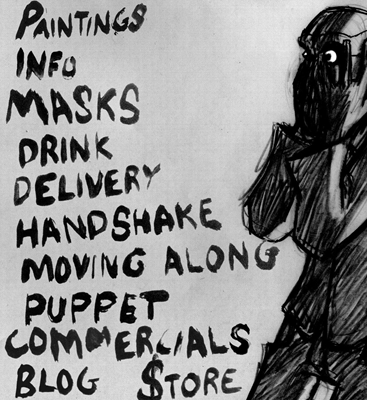 PAINTINGS
INFO
MASKS
DRINK
DELIVERY
HANDSHAKE
MOVING ALONG
PUPPET
COMMERCIALS
BLOG $TORE